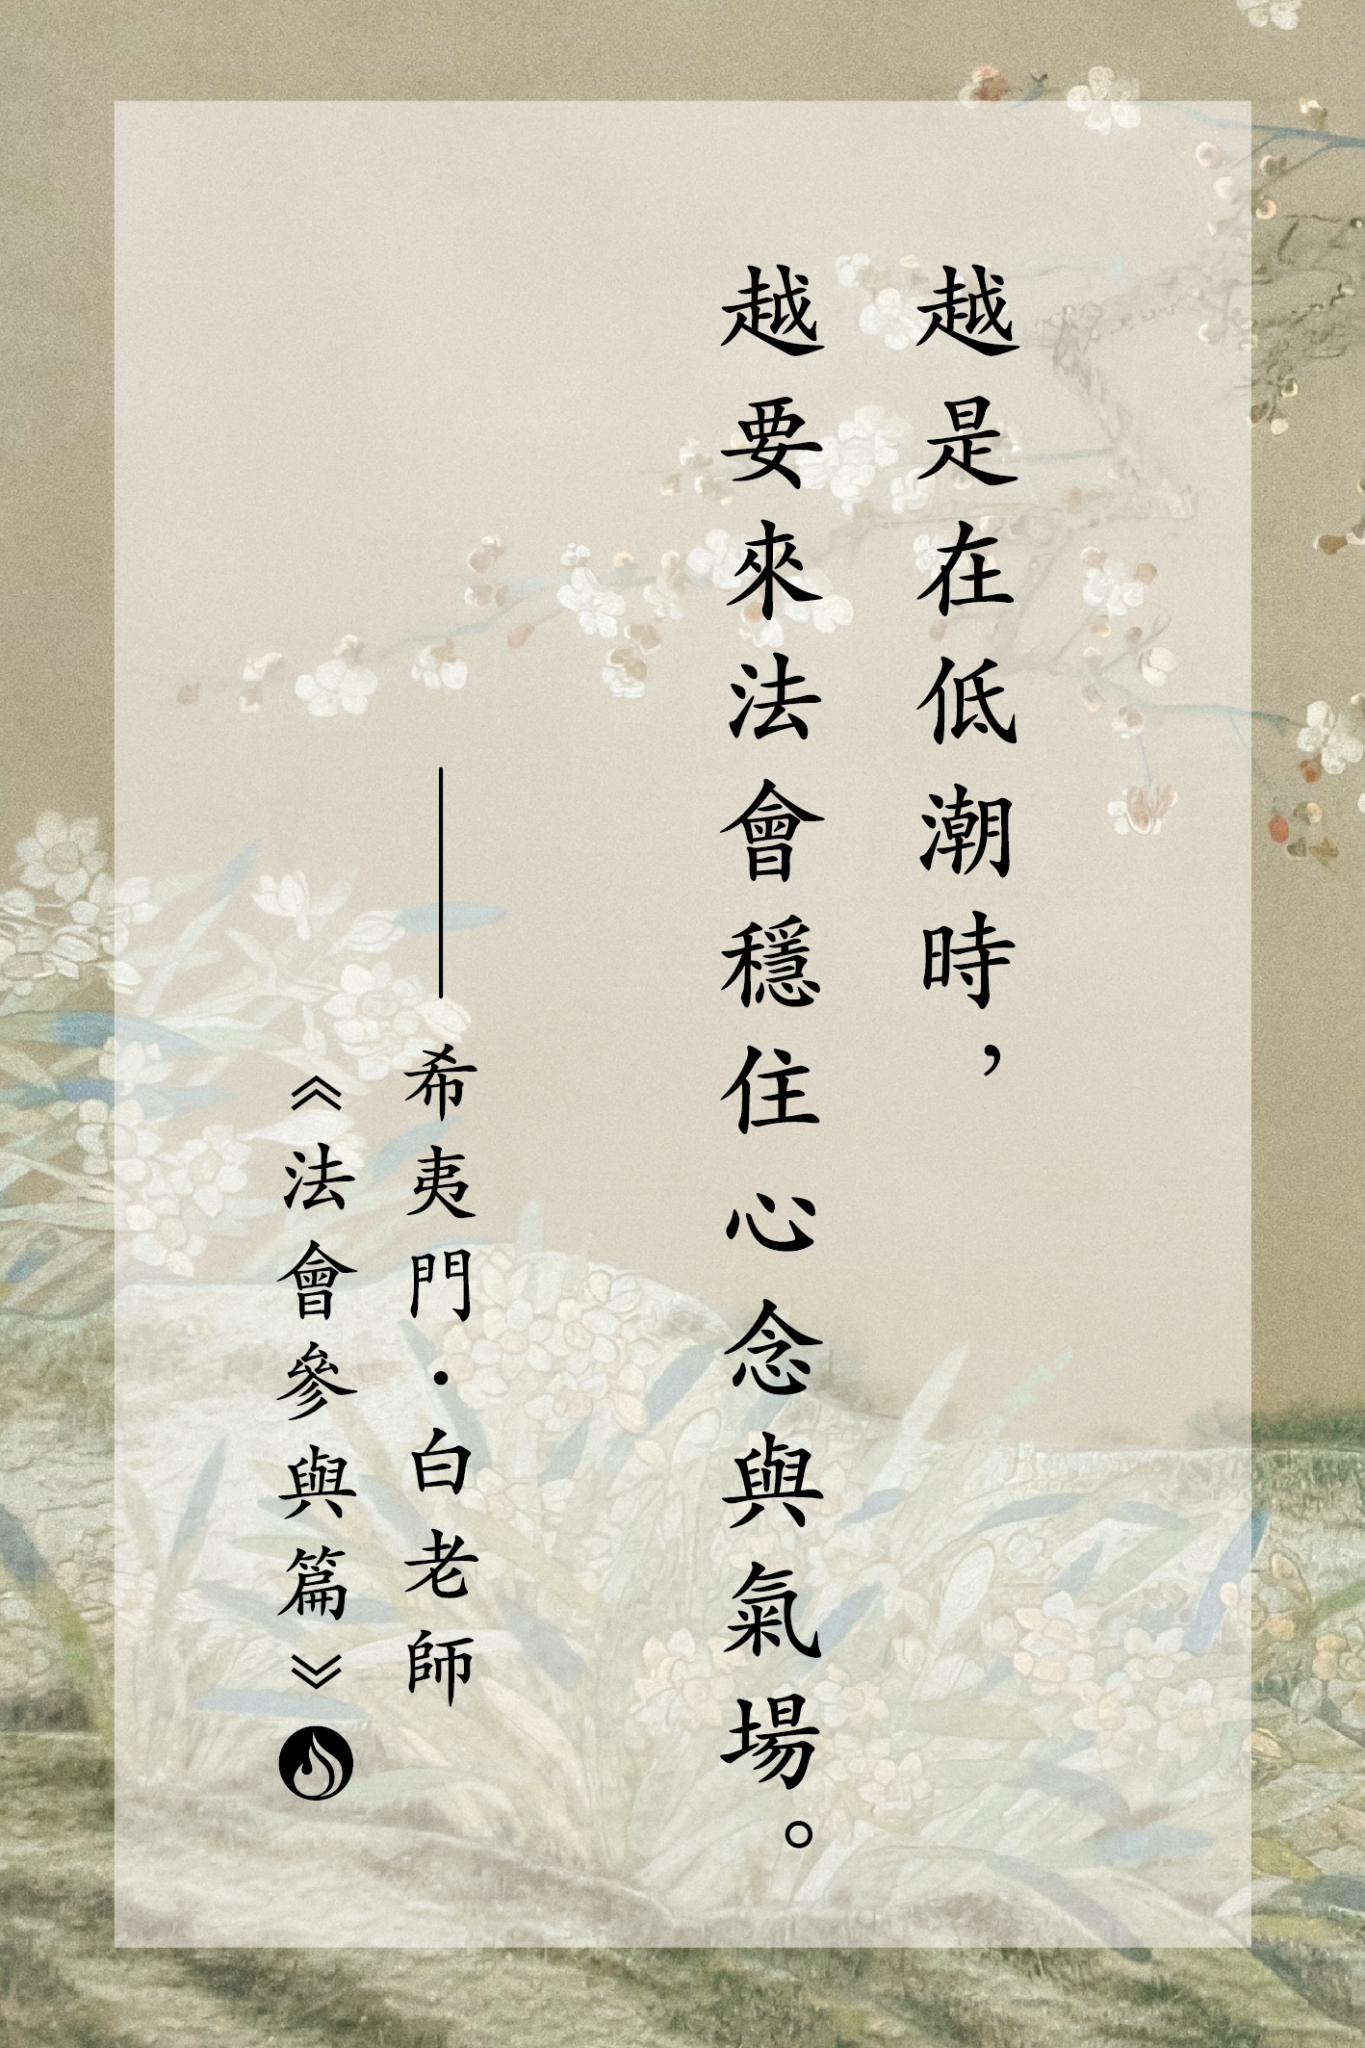 越是在低潮時，
越要來法會穩住心念與氣場。
——希夷門·白老師
《法會參與篇》